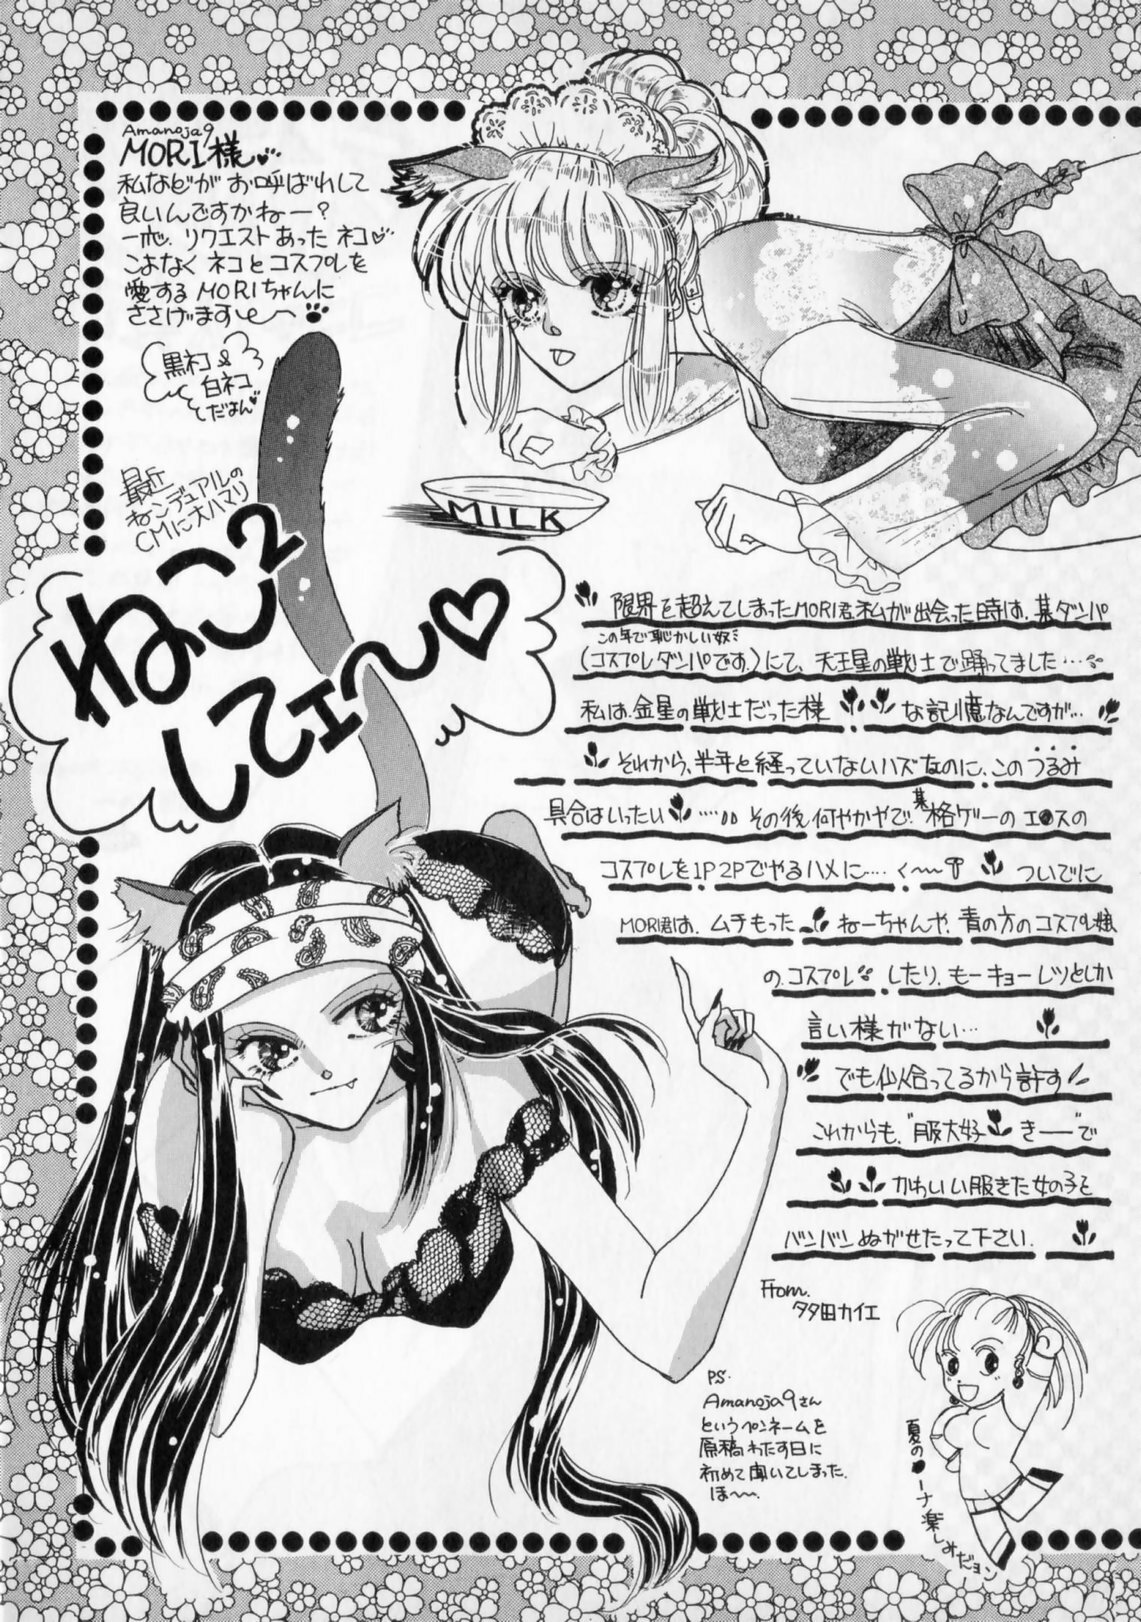 Amanoja9
MORI様♥
私などが お呼ばれして
良いんですかねー?
一応、リクエストあった ネコ♥
こよなく ネコとコスプレを
愛する MORIちゃんに
ささげます
黒ネコ &
白ネコ
だよん♥
最近
ねこンデュアルの
CMに大ハマリ
ねこ2
してェ〜♡
MILK
限界を超えてしまったMORI君、私が出会った時は、某ダンパ
この年で恥かしい奴ミ
(コスプレダンパです。)にて、天王星の戦士で踊ってました…
私は、金星の戦士だった様な記憶なんですが…
それから、半年と経っていないハズなのに、このうるみ
具合はいったい…… その後、何やかやで、某格ゲーの エ●スの
コスプレを1P2Pでやるハメに…. く〜 ついでに
MORI君は、ムチもった ねーちゃんや、青の方のコスプレ嬢
の、コスプレ したり、もーキョーレツとしか
言い様がない…
でも似合ってるから許す!!
これからも、"服大好きーーで
かわいい服きた女の子を
バンバンぬがせたって下さい.
From.
タタ田カイエ
PS.
Amanoja9さん
というペンネームを
原稿わたす日に
初めて聞いてしまった.
ほ〜〜.
夏の●ーナ楽しみだョン